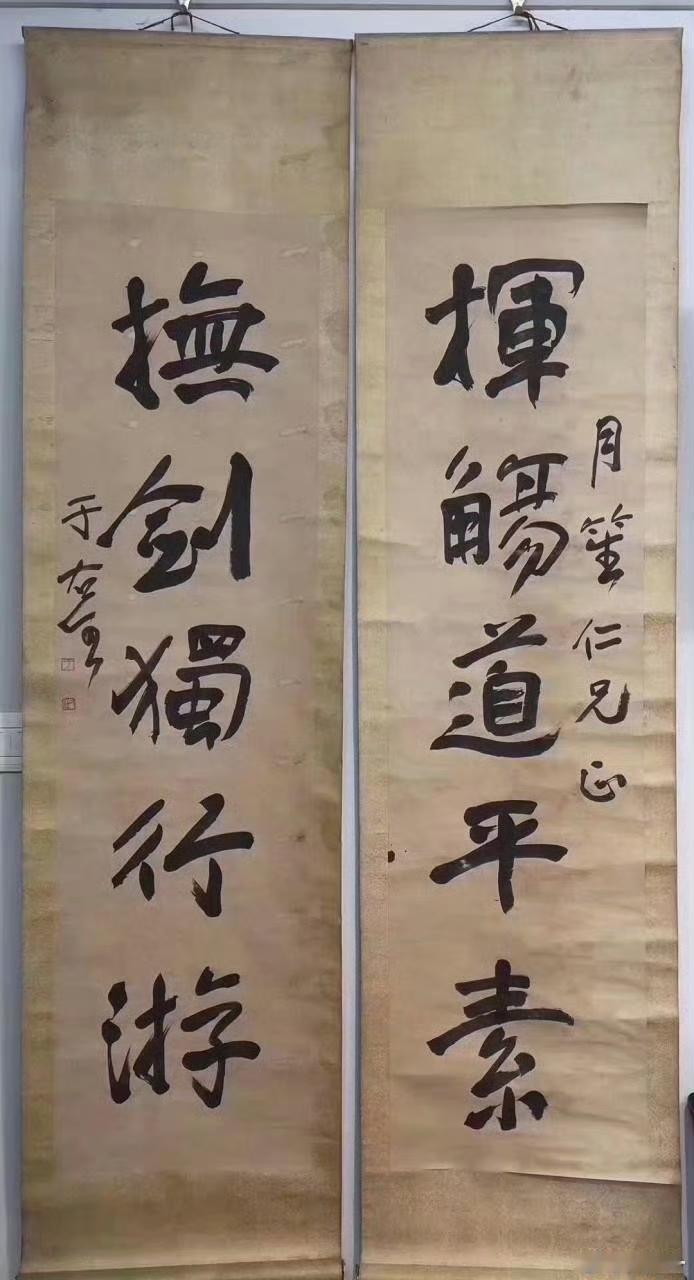 揮觴道平素
月笙仁兄正
撫劍獨行游
于右任